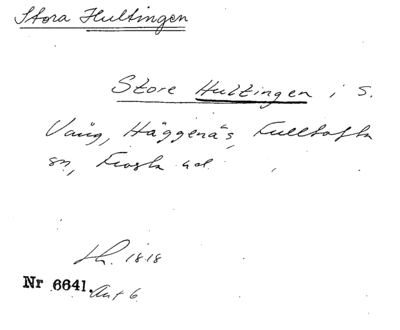 Stora Hultingen
Store Hultingen i S.
Vång, Häggenäs, Fulltofta
sn, Frosta hd.
Lh. 1818
Nr 6641. Akt 6